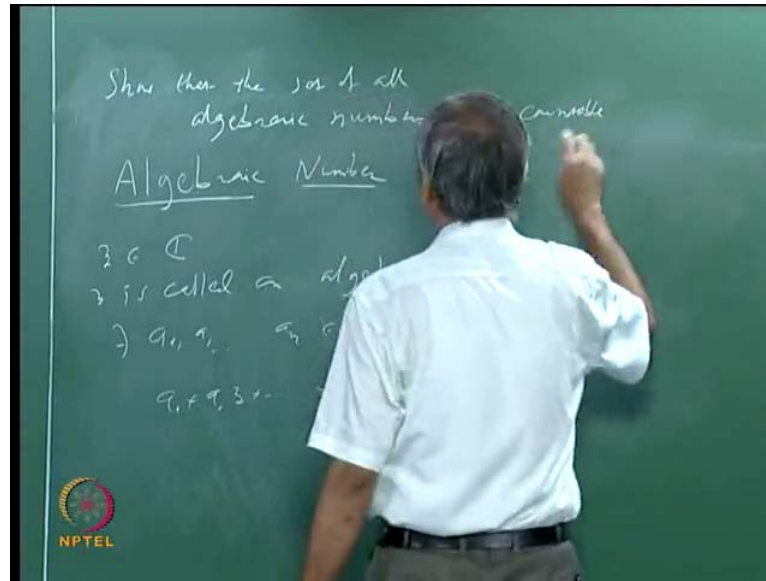 Show that the set of all
algebraic number countable
Algebraic Number
z ∈ ℂ
z is called an algeb
∃ a₀, a₁, ... aₙ ∈
a₀ + a₁ z + ...
NPTEL